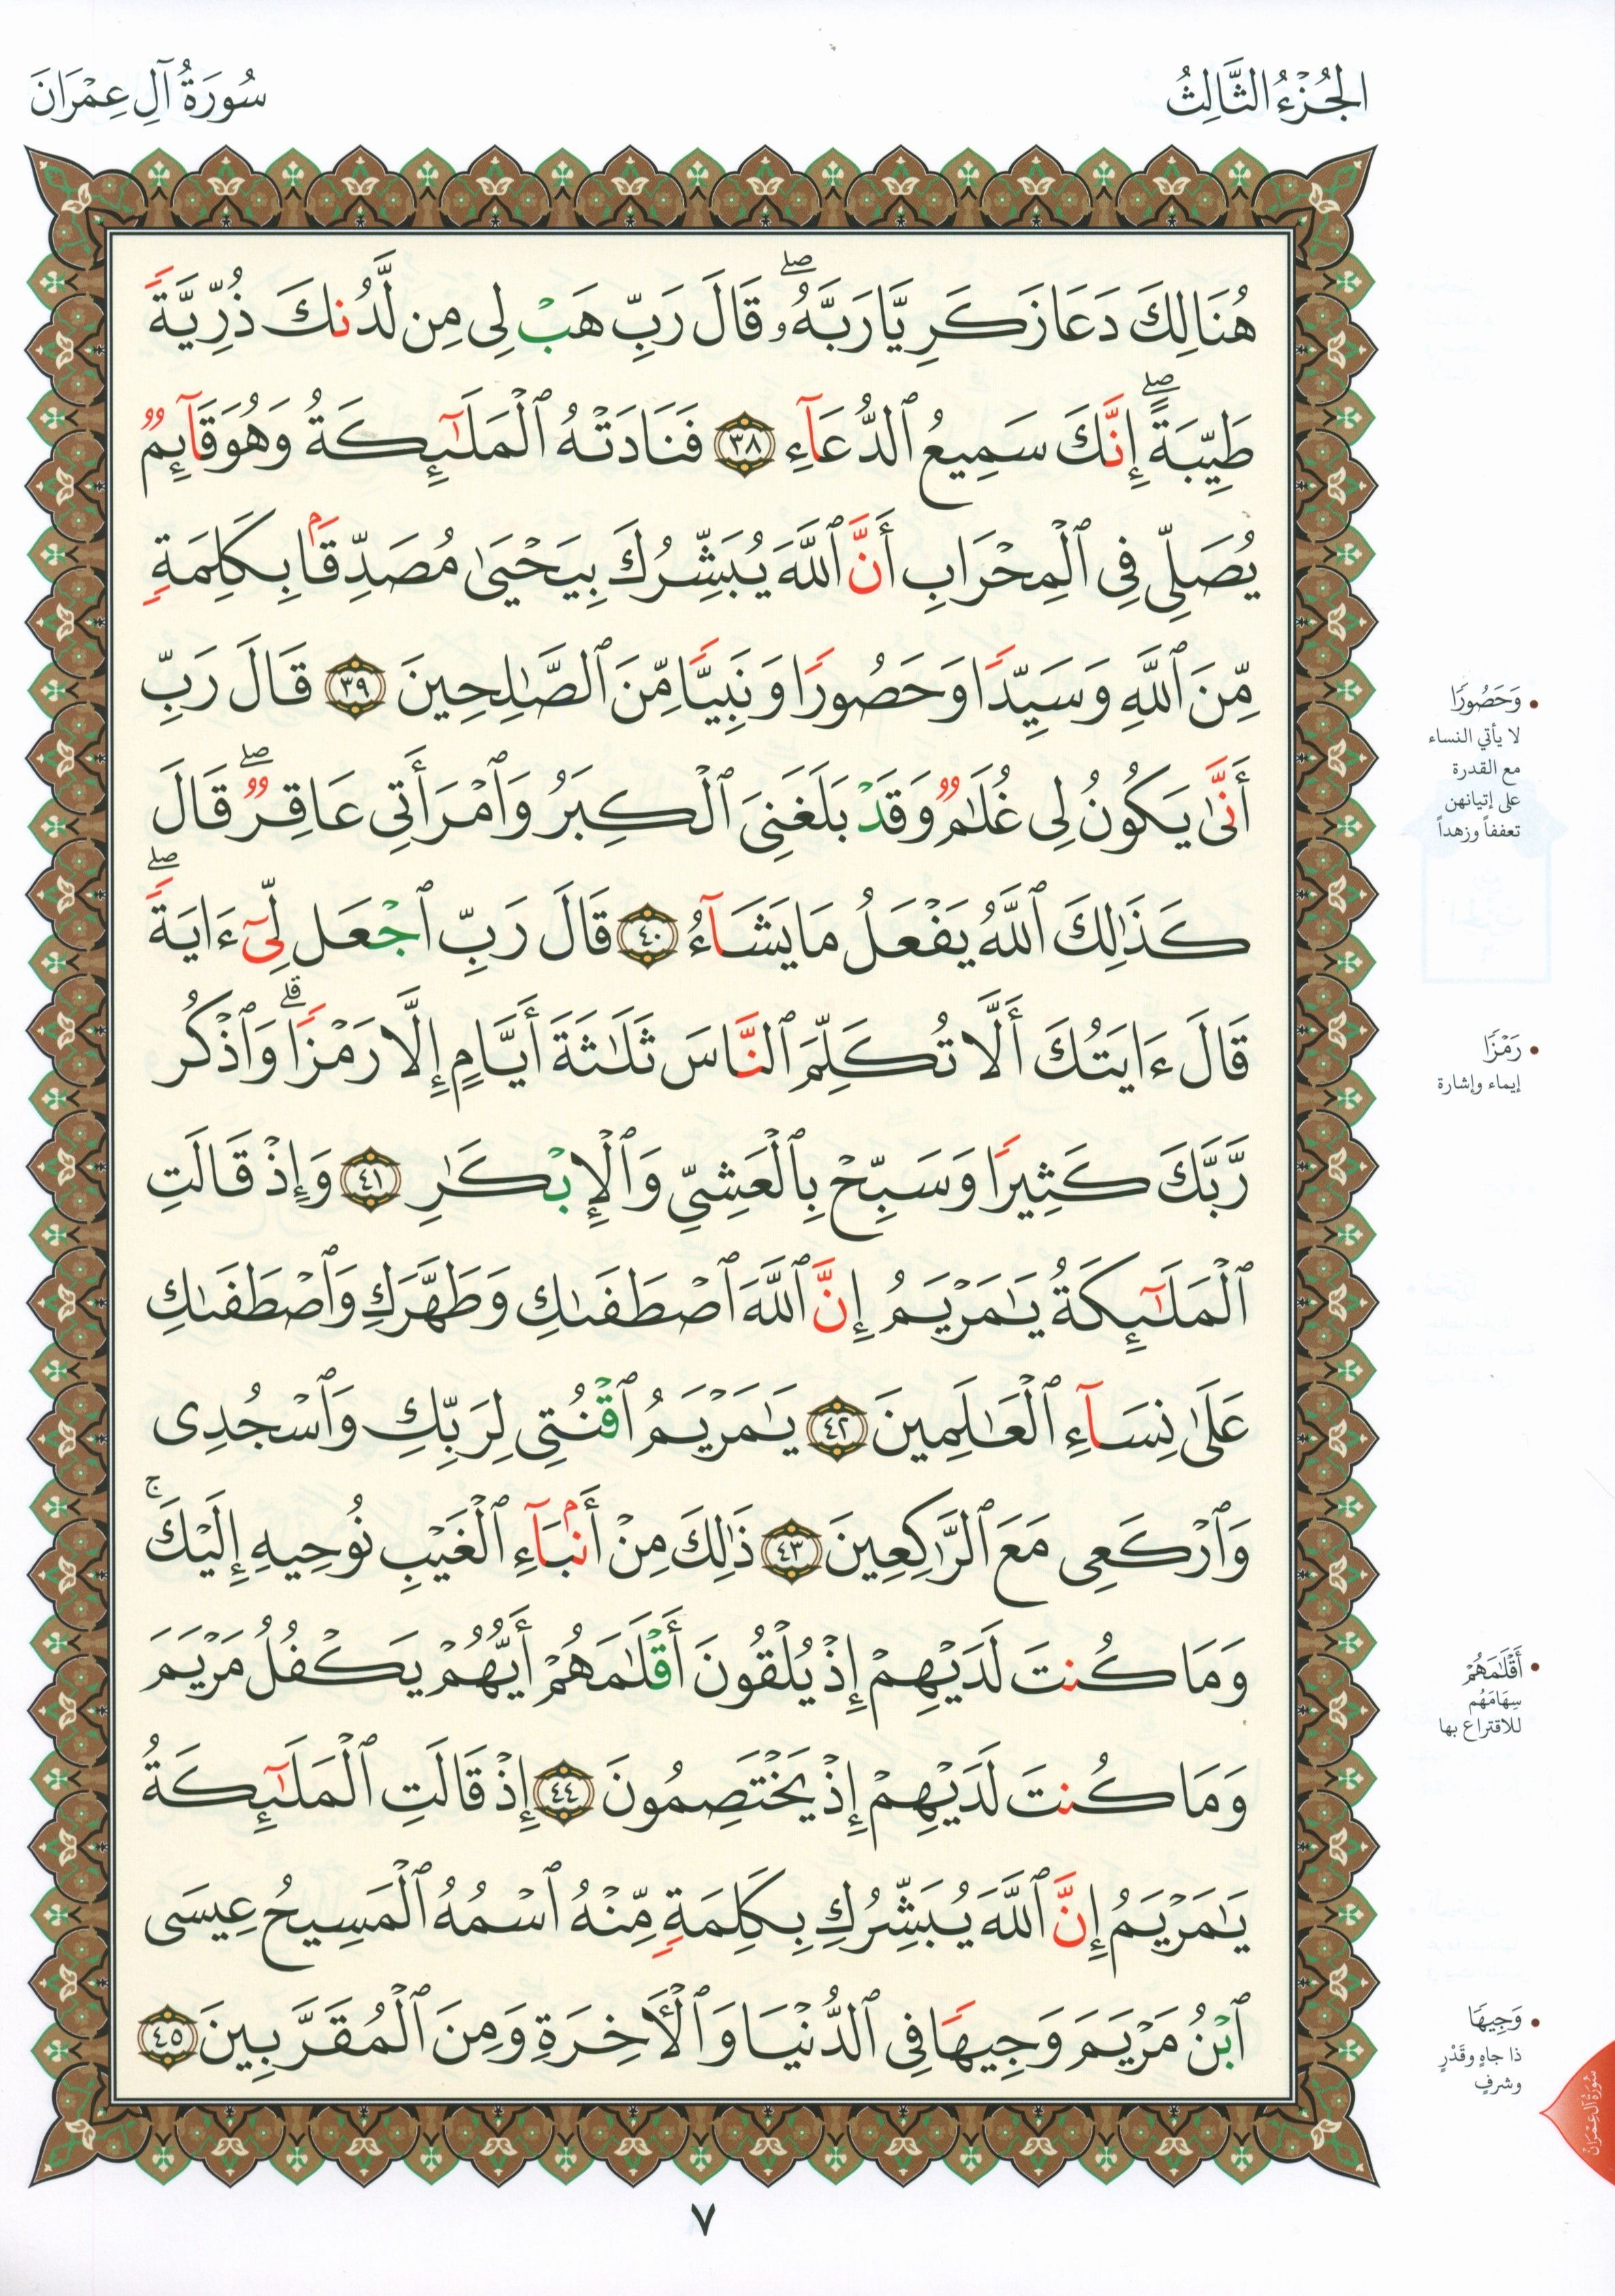 الجُزْءُ الثَّالِثُ
سُورَةُ آلِ عِمْرَانَ
هُنَالِكَ دَعَا زَكَرِيَّا رَبَّهُۥۖ قَالَ رَبِّ هَبْ لِى مِن لَّدُنكَ ذُرِّيَّةً
طَيِّبَةًۖ إِنَّكَ سَمِيعُ ٱلدُّعَآءِ ٣٨ فَنَادَتْهُ ٱلْمَلَٰٓئِكَةُ وَهُوَ قَآئِمٌ
يُصَلِّى فِى ٱلْمِحْرَابِ أَنَّ ٱللَّهَ يُبَشِّرُكَ بِيَحْيَىٰ مُصَدِّقًۢا بِكَلِمَةٍ
مِّنَ ٱللَّهِ وَسَيِّدًا وَحَصُورًا وَنَبِيًّا مِّنَ ٱلصَّٰلِحِينَ ٣٩ قَالَ رَبِّ
أَنَّىٰ يَكُونُ لِى غُلَٰمٌ وَقَدْ بَلَغَنِىَ ٱلْكِبَرُ وَٱمْرَأَتِى عَاقِرٌۖ قَالَ
كَذَٰلِكَ ٱللَّهُ يَفْعَلُ مَا يَشَآءُ ٤٠ قَالَ رَبِّ ٱجْعَل لِّىٓ ءَايَةًۖ
قَالَ ءَايَتُكَ أَلَّا تُكَلِّمَ ٱلنَّاسَ ثَلَٰثَةَ أَيَّامٍ إِلَّا رَمْزًاۗ وَٱذْكُر
رَّبَّكَ كَثِيرًا وَسَبِّحْ بِٱلْعَشِىِّ وَٱلْإِبْكَٰرِ ٤١ وَإِذْ قَالَتِ
ٱلْمَلَٰٓئِكَةُ يَٰمَرْيَمُ إِنَّ ٱللَّهَ ٱصْطَفَىٰكِ وَطَهَّرَكِ وَٱصْطَفَىٰكِ
عَلَىٰ نِسَآءِ ٱلْعَٰلَمِينَ ٤٢ يَٰمَرْيَمُ ٱقْنُتِى لِرَبِّكِ وَٱسْجُدِى
وَٱرْكَعِى مَعَ ٱلرَّٰكِعِينَ ٤٣ ذَٰلِكَ مِنْ أَنۢبَآءِ ٱلْغَيْبِ نُوحِيهِ إِلَيْكَۚ
وَمَا كُنتَ لَدَيْهِمْ إِذْ يُلْقُونَ أَقْلَٰمَهُمْ أَيُّهُمْ يَكْفُلُ مَرْيَمَ
وَمَا كُنتَ لَدَيْهِمْ إِذْ يَخْتَصِمُونَ ٤٤ إِذْ قَالَتِ ٱلْمَلَٰٓئِكَةُ
يَٰمَرْيَمُ إِنَّ ٱللَّهَ يُبَشِّرُكِ بِكَلِمَةٍ مِّنْهُ ٱسْمُهُ ٱلْمَسِيحُ عِيسَى
ٱبْنُ مَرْيَمَ وَجِيهًا فِى ٱلدُّنْيَا وَٱلْأَخِرَةِ وَمِنَ ٱلْمُقَرَّبِينَ ٤٥
• وَحَصُورًا
لا يأتي النساء
مع القدرة
على إتيانهن
تعففاً وزهداً
• رَمْزًا
إيماء وإشارة
• أَقْلَٰمَهُمْ
سِهَامَهُم
للاقتراع بها
• وَجِيهًا
ذا جاهٍ وقَدْرٍ
وشرفٍ
سُورَةُ آلِ عِمْرَانَ
٧